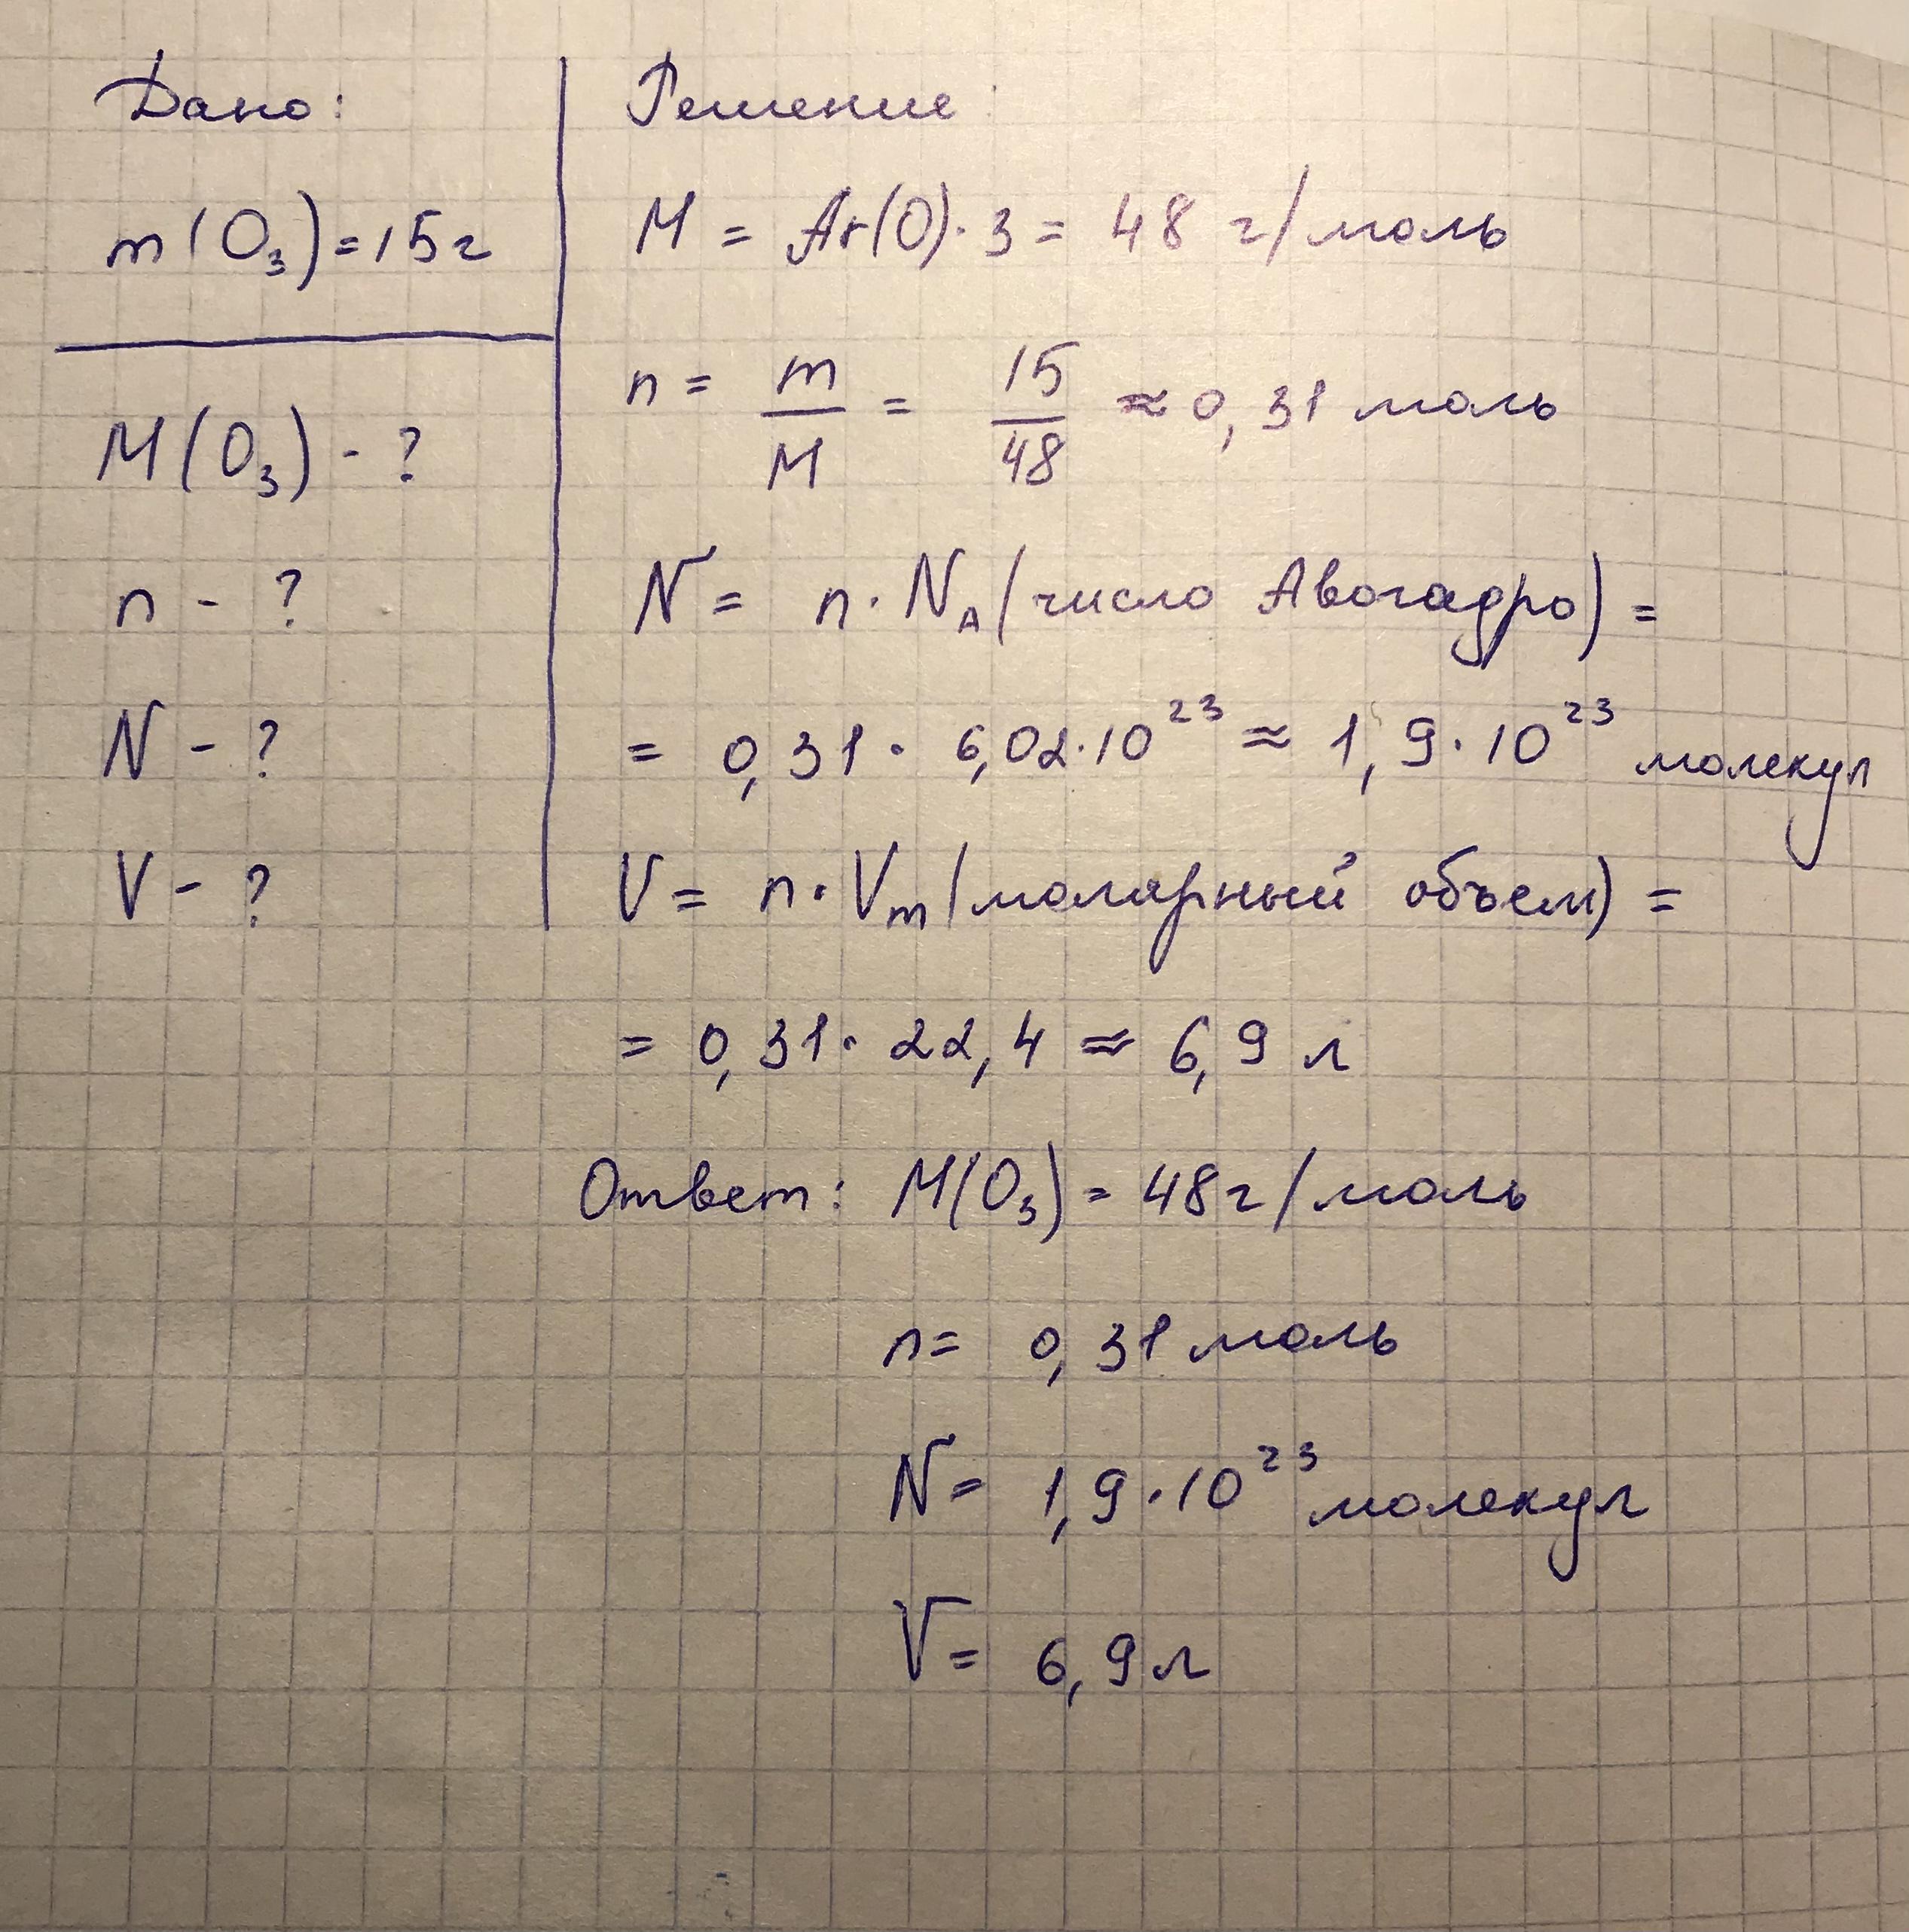 Дано:
m(O₃)=15г
M(O₃) - ?
n - ?
N - ?
V - ?
Решение:
M = Ar(O)·3 = 48 г/моль
n = m/M = 15/48 ≈ 0,31 моль
N = n·Nₐ(число Авогадро) =
= 0,31 · 6,02·10²³ ≈ 1,9·10²³ молекул
V = n·Vₘ(молярный объем) =
= 0,31 · 22,4 ≈ 6,9 л
Ответ: M(O₃) = 48г/моль
n = 0,31 моль
N = 1,9·10²³ молекул
V = 6,9 л